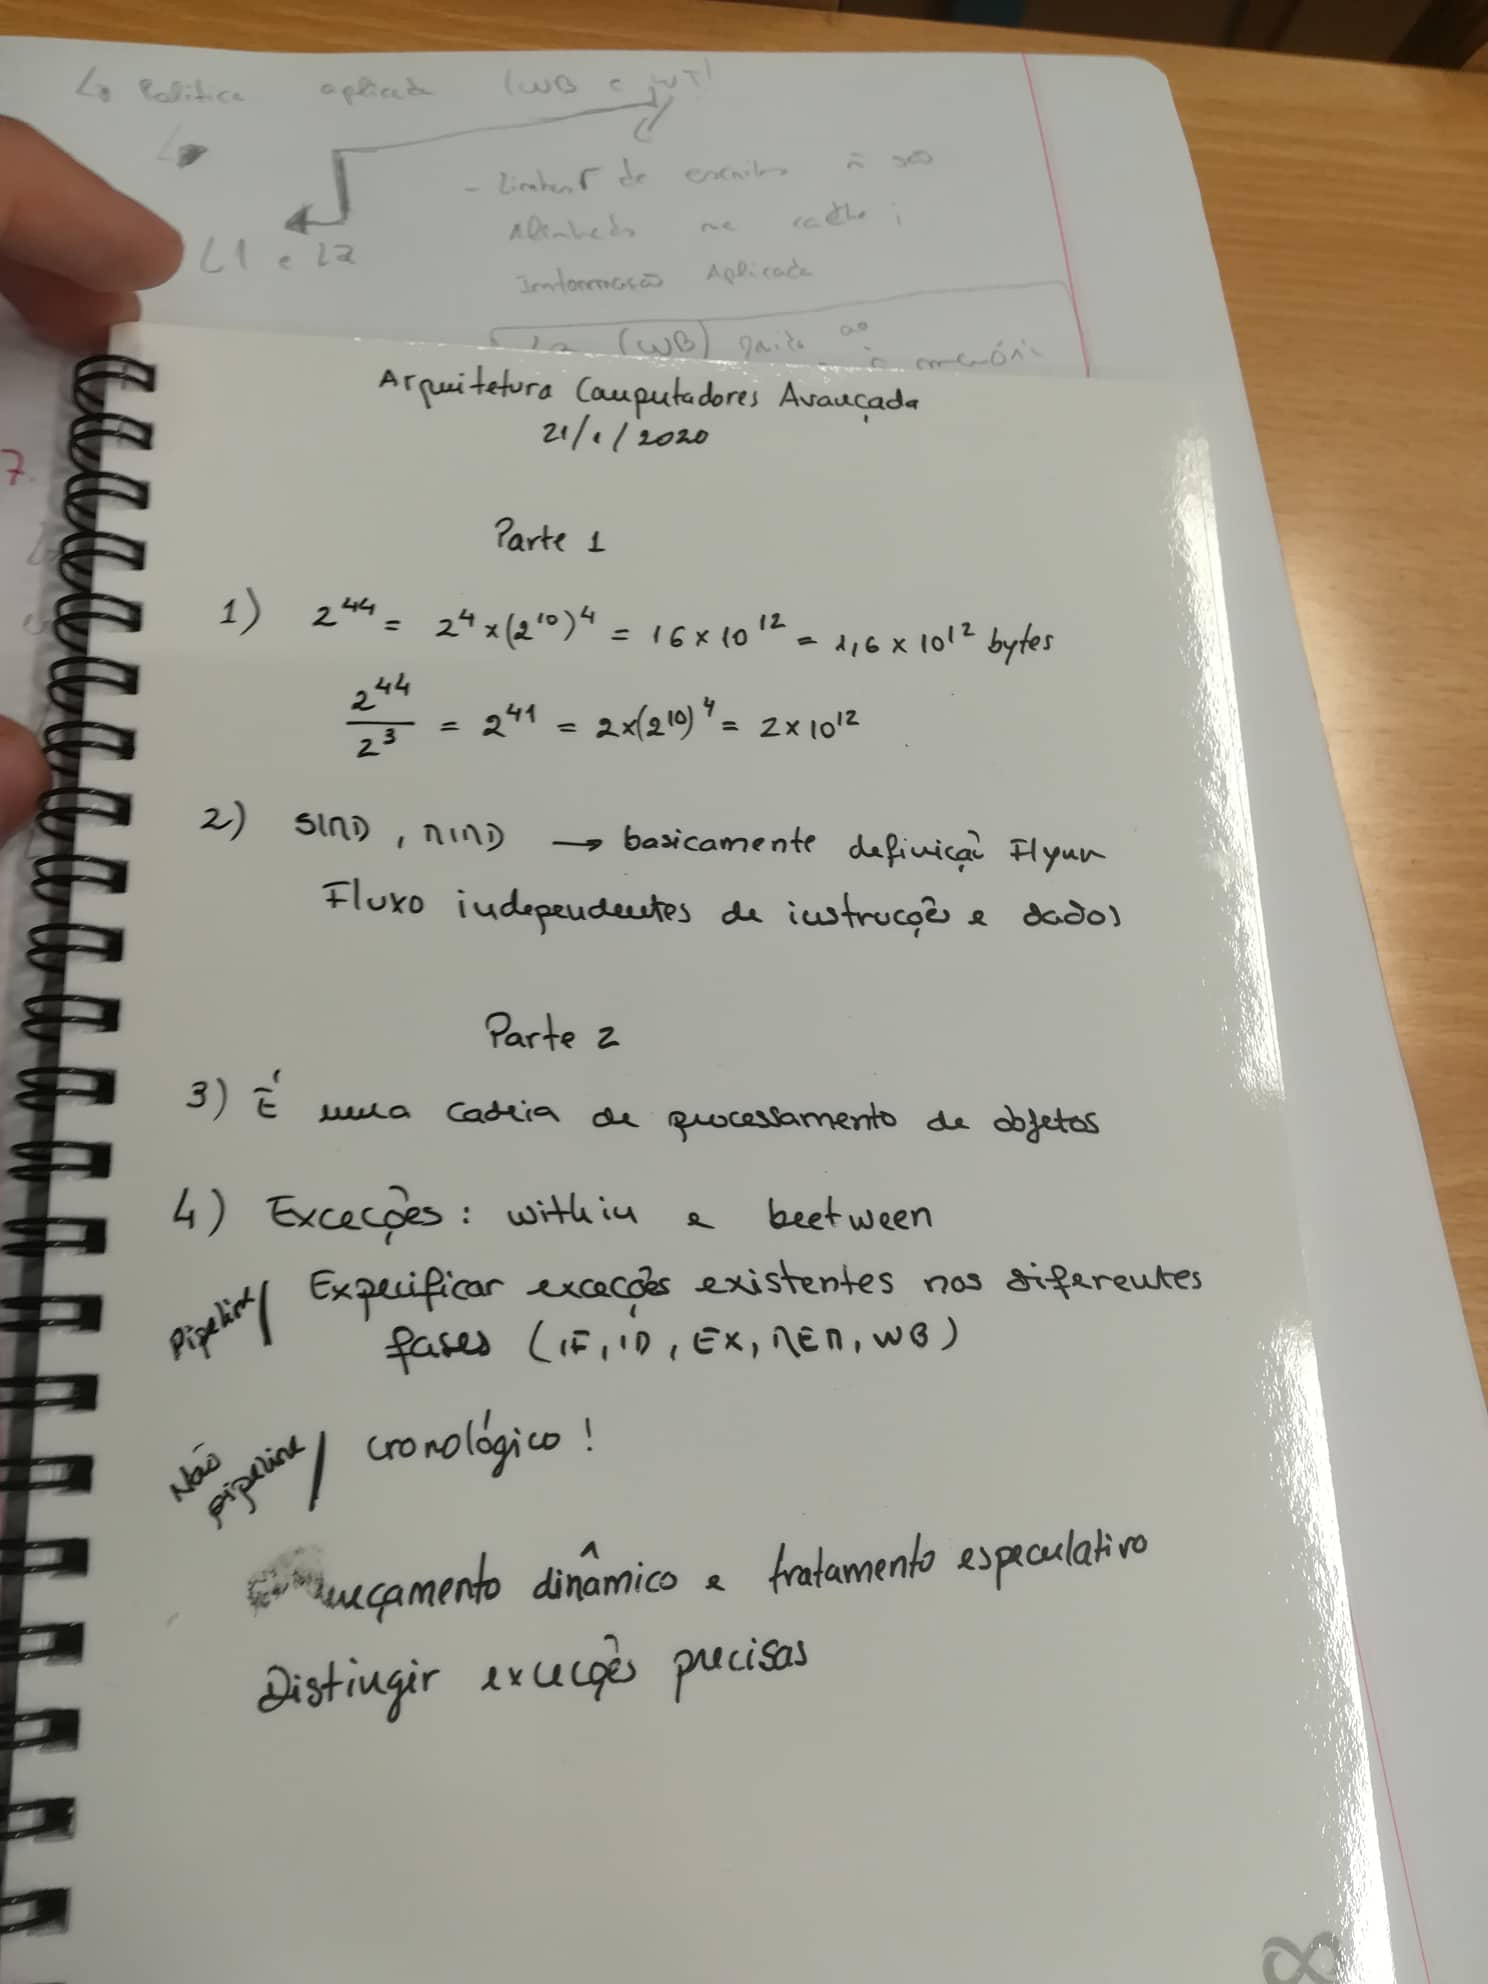 ↳ Politica aplicada (WB e WT)
L1 e L2
- de escrita ñ são
na cache ;
Informação Aplicada
(WB)
7.
Arquitetura Computadores Avançada
21/1/2020
Parte 1
1) 2^44 = 2^4 x (2^10)^4 = 16 x 10^12 = 1,6 x 10^12 bytes
2^44 / 2^3 = 2^41 = 2x(2^10)^4 = 2 x 10^12
2) SIMD, MIMD → basicamente definição Flynn
Fluxo independentes de instrucções e dados
Parte 2
3) É uma cadeia de processamento de objetos
4) Exceções: within e beetween
Pipeline / Expecificar exceções existentes nas diferentes
fases (IF, ID, EX, MEM, WB)
Não pipeline / cronológico!
dinâmico e tratamento especulativo
Distingir exceções precisas